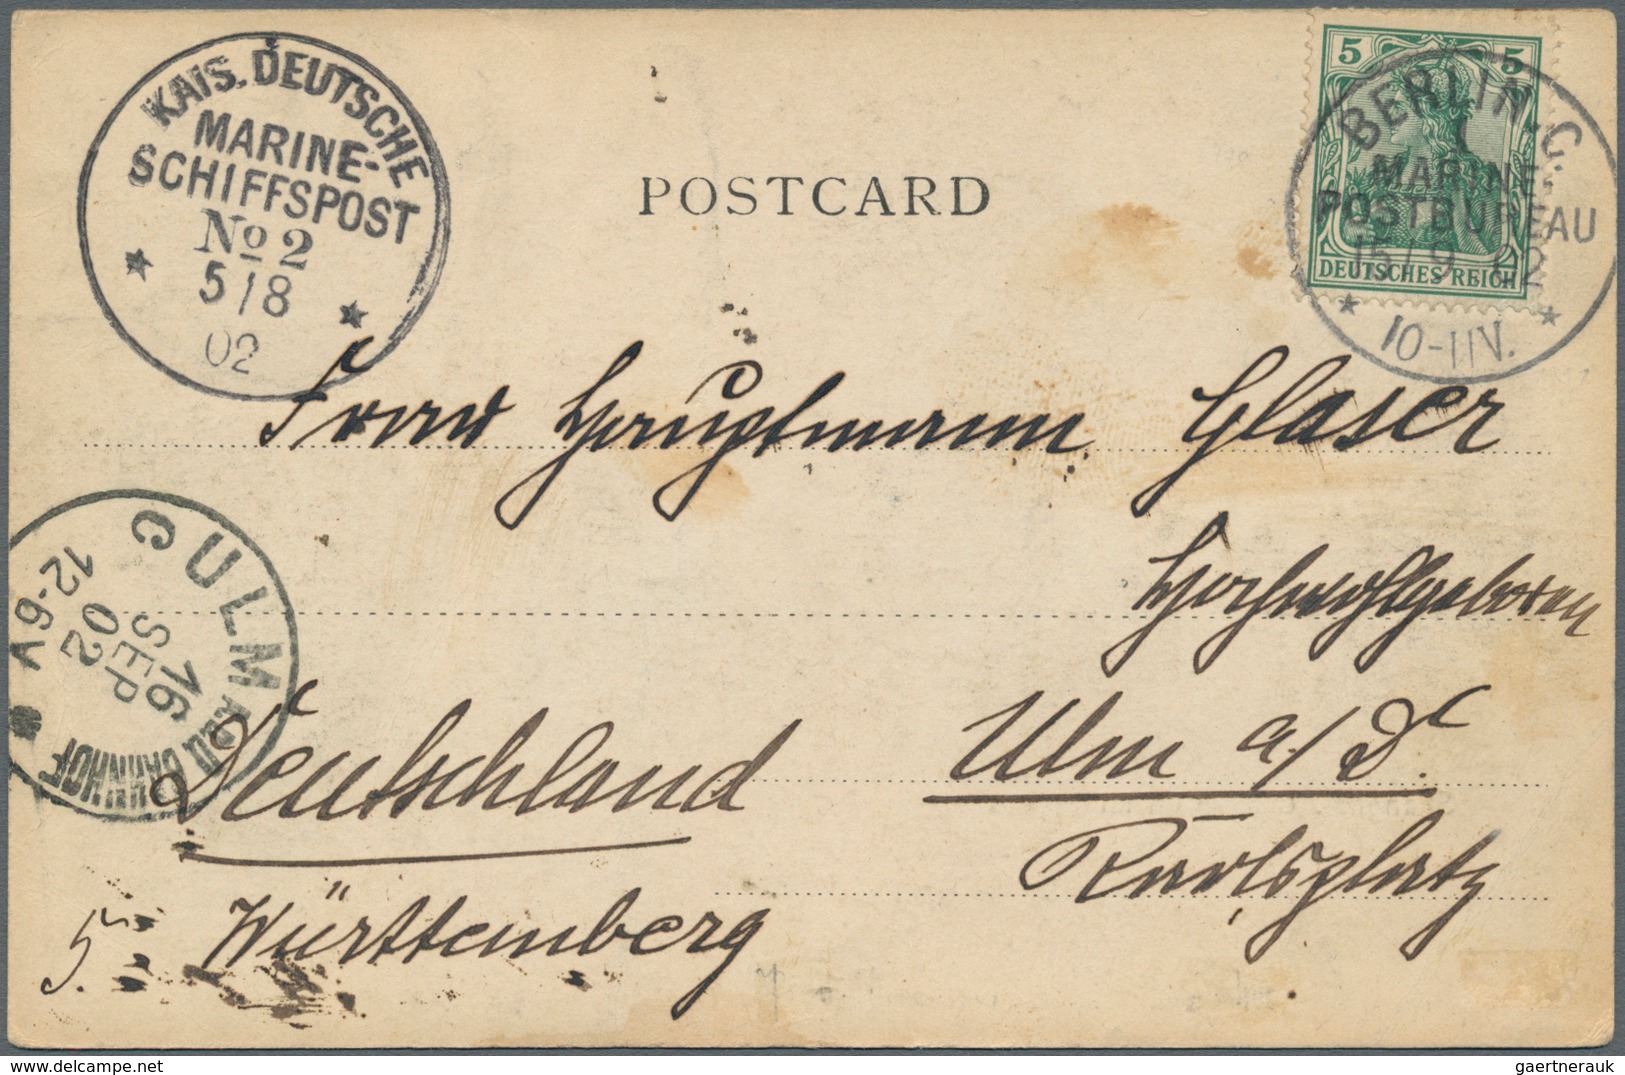 KAIS. DEUTSCHE
MARINE-
SCHIFFSPOST
No 2
5/8
02
POSTCARD
5 5
DEUTSCHES REICH
BERLIN. C.
MARINE-
POSTBUREAU
15/9 02
10-11V.
Frau Hauptmann Glaser
Hochwohlgeboren
ULM
BAHNHOF
16
SEP
02
12-6V
Deutschland
Ulm a/D.
Karlsplatz
5.
Württemberg
gaertnerauk